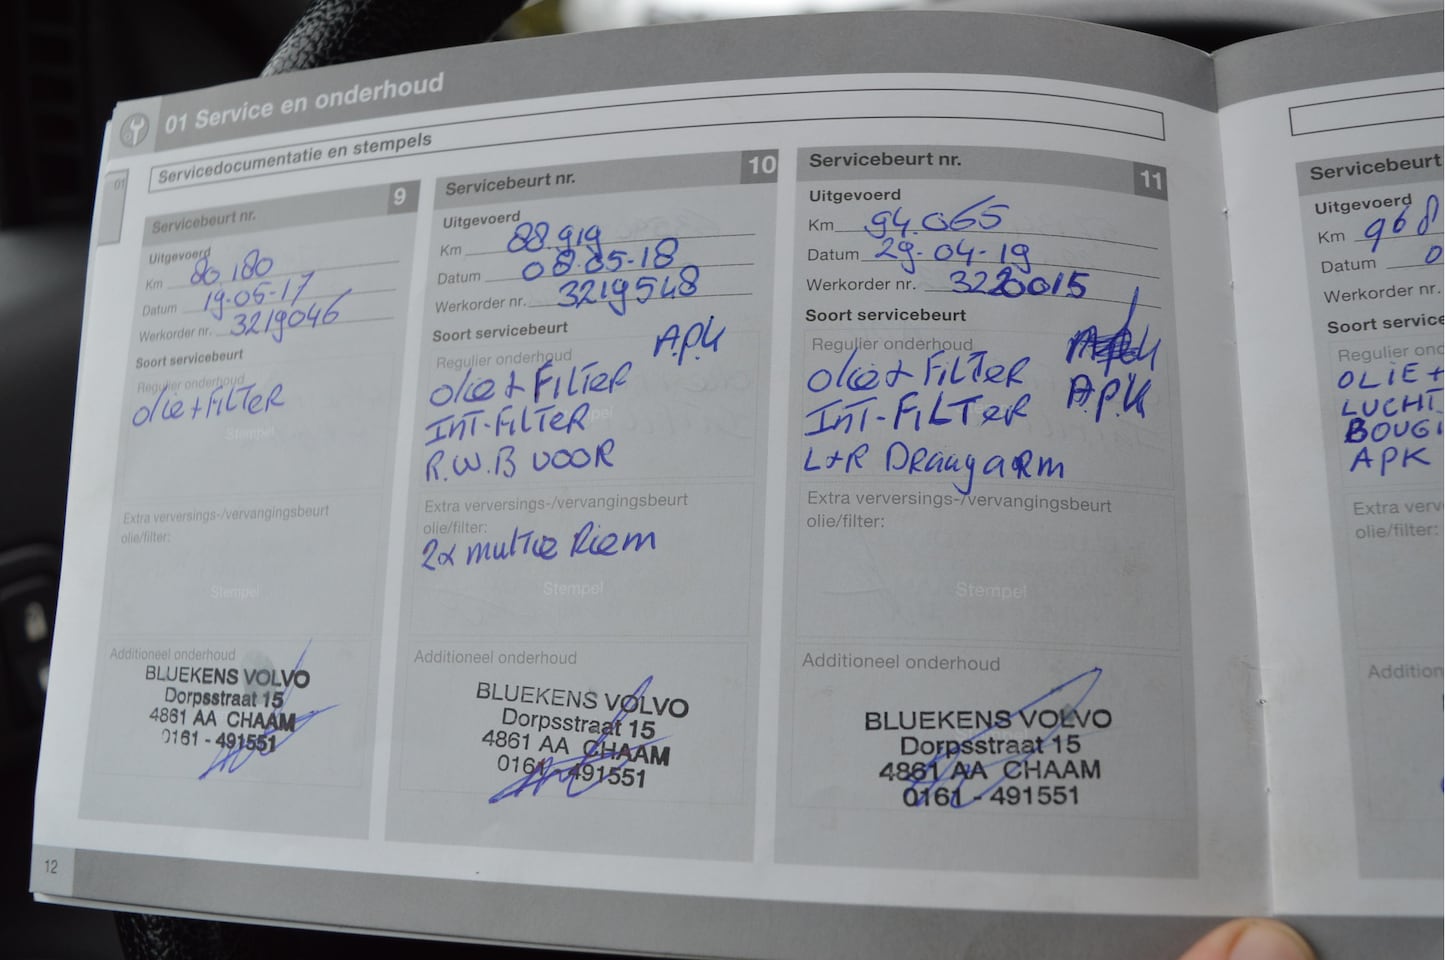 01 Service en onderhoud
Servicedocumentatie en stempels
01
Servicebeurt nr. 9
Uitgevoerd
Km 80.180
Datum 19-05-17
Werkorder nr. 3219046
Soort servicebeurt
Regulier onderhoud
olie + FILTER
Stempel
Extra verversings-/vervangingsbeurt
olie/filter:
Stempel
Additioneel onderhoud
BLUEKENS VOLVO
Dorpsstraat 15
4861 AA CHAAM
0161 - 491551
12
Servicebeurt nr. 10
Uitgevoerd
Km 88.919
Datum 08-05-18
Werkorder nr. 3219548
Soort servicebeurt
Regulier onderhoud
A.P.K
olie + FILTER
INT-FILTER
R.W.B VOOR
Extra verversings-/vervangingsbeurt
olie/filter:
2x multie Riem
Stempel
Additioneel onderhoud
BLUEKENS VOLVO
Dorpsstraat 15
4861 AA CHAAM
0161 - 491551
Servicebeurt nr. 11
Uitgevoerd
Km 94.065
Datum 29-04-19
Werkorder nr. 3220015
Soort servicebeurt
Regulier onderhoud
olie + FILTER
A.P.K
INT-FILTER
L+R Draagarm
Extra verversings-/vervangingsbeurt
olie/filter:
Stempel
Additioneel onderhoud
BLUEKENS VOLVO
Dorpsstraat 15
4861 AA CHAAM
0161 - 491551
Servicebeurt
Uitgevoerd
Km 968
Datum 0
Werkorder nr.
Soort service
Regulier ond
OLIE +
LUCHT
BOUGI
APK
Extra verv
olie/filter:
Addition